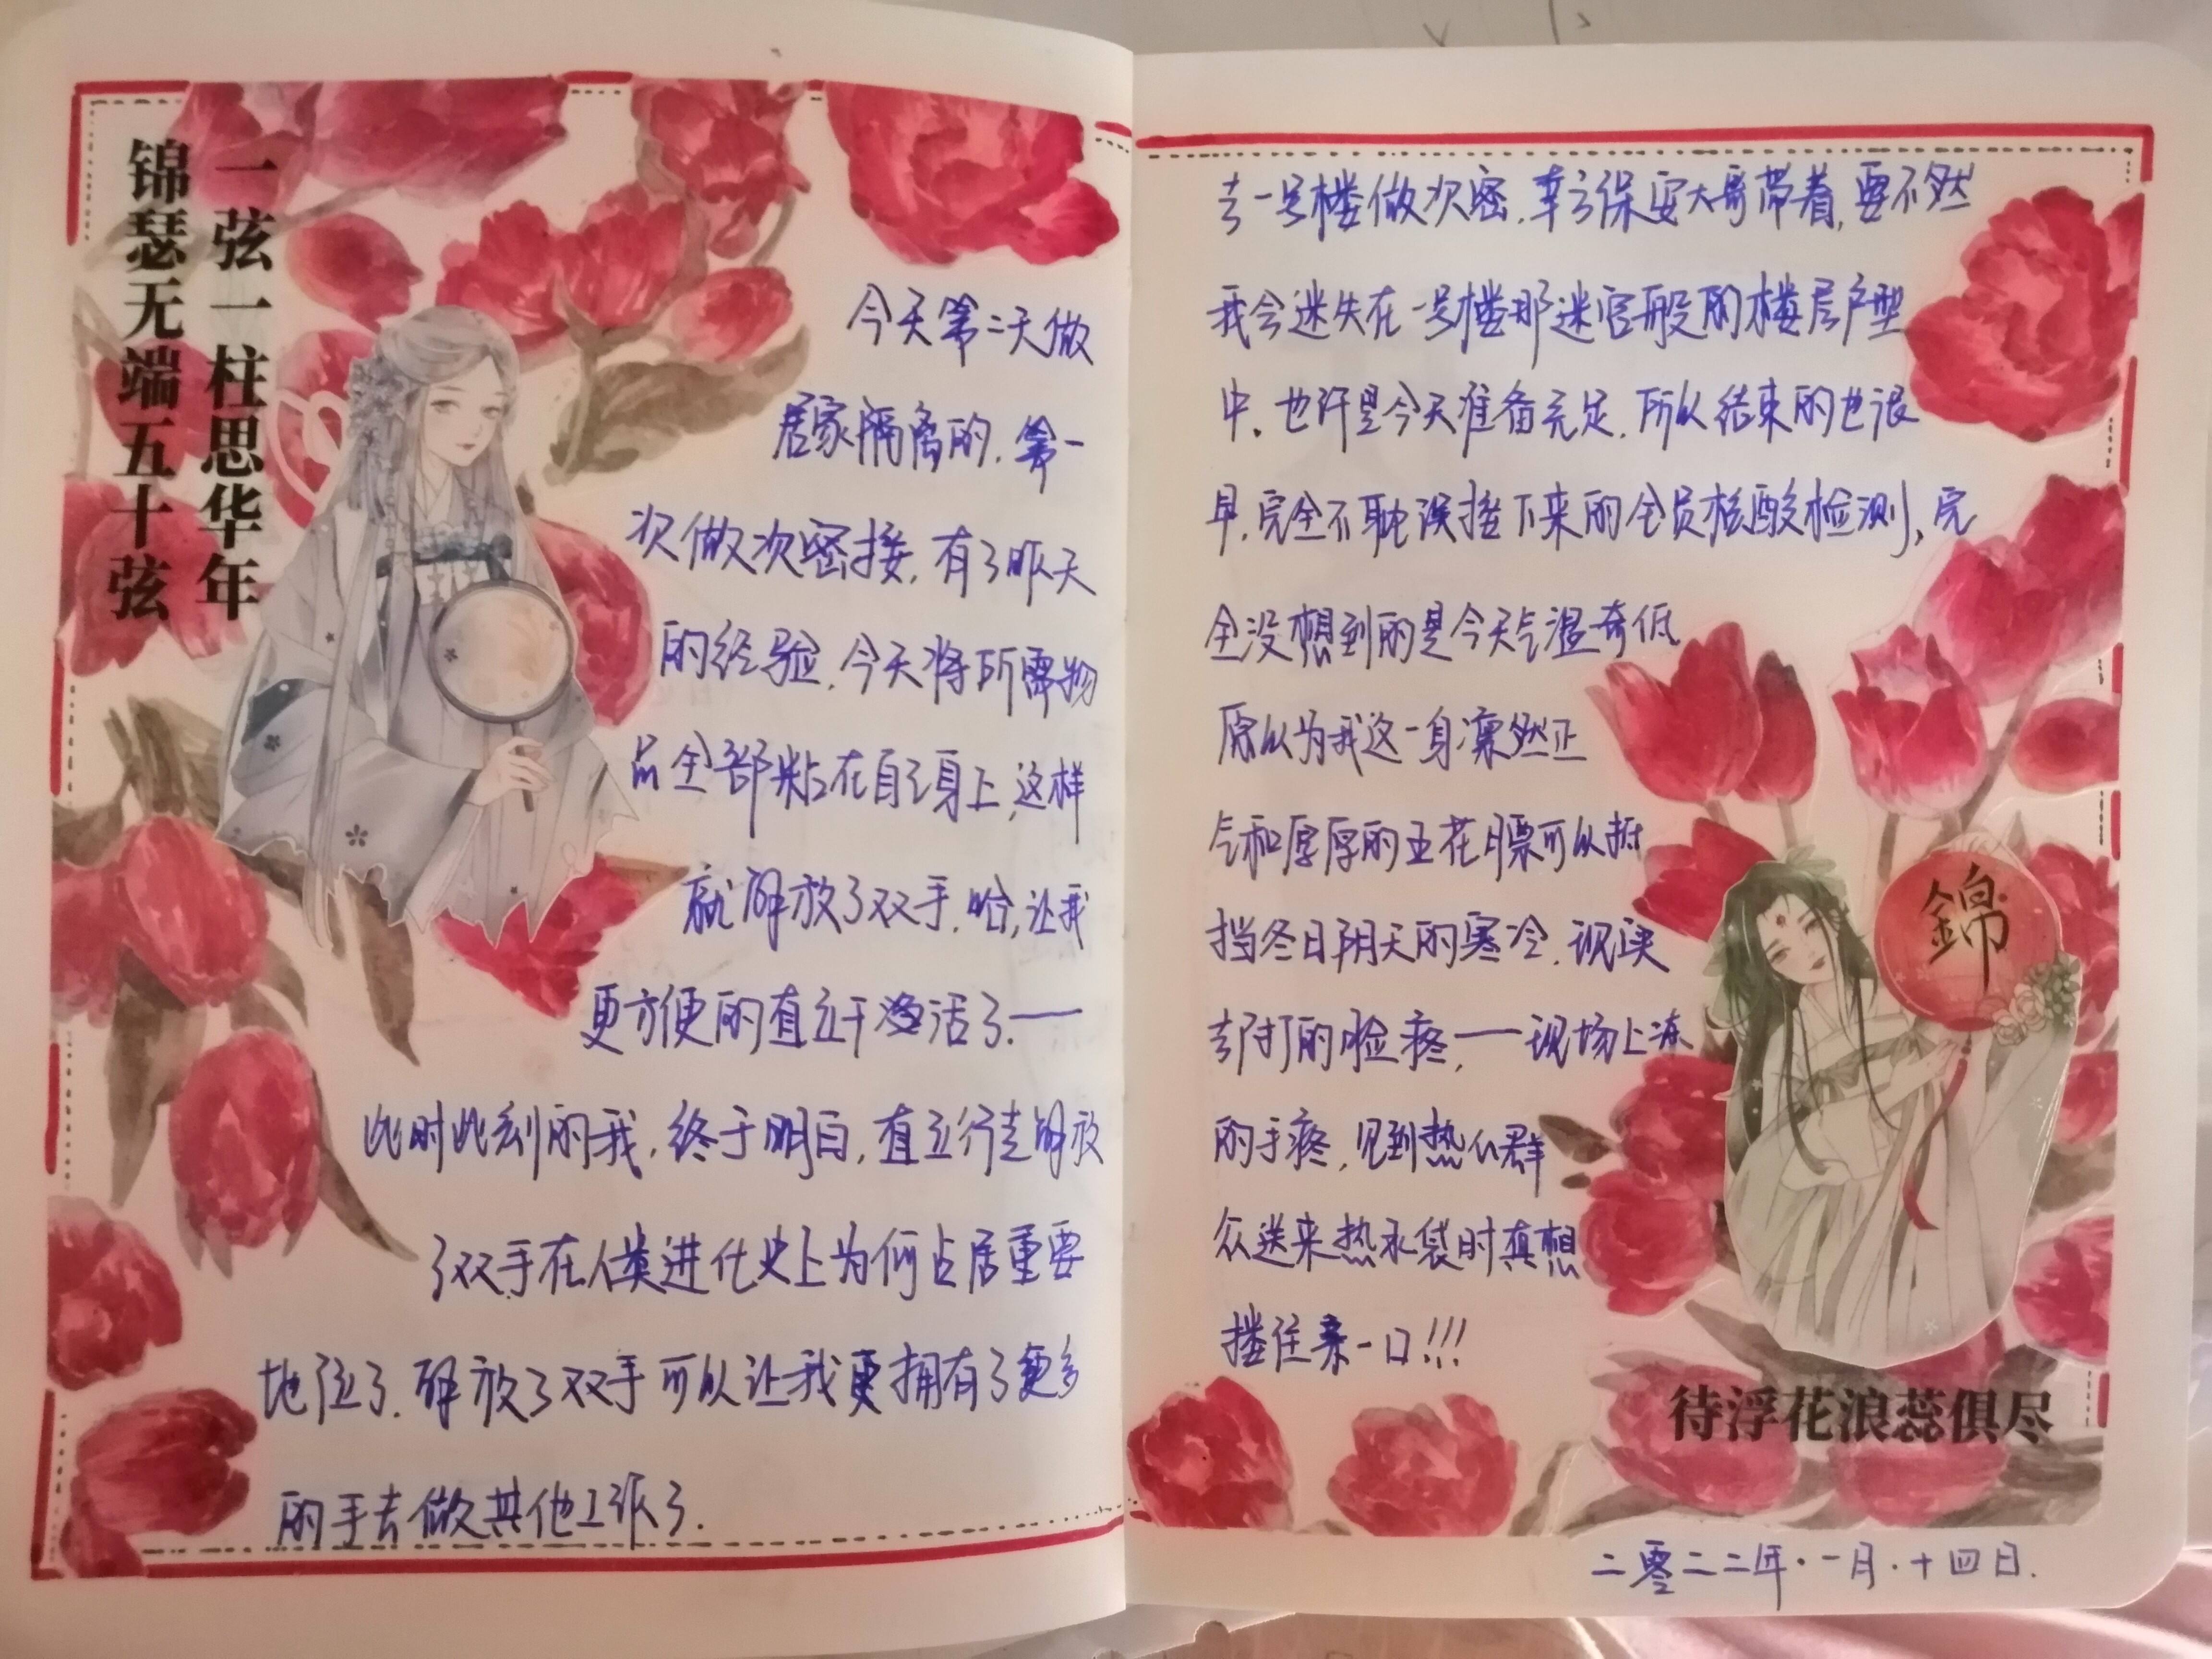 锦瑟无端五十弦
一弦一柱思华年
今天第二天做
居家隔离的,第一
次做次密接,有了昨天
的经验,今天将所需物
品全部粘在自己身上,这样
就解放了双手,哈,让我
更方便的直立干活了.——
此时此刻的我,终于明白,直立行走解放
了双手在人类进化史上为何占居重要
地位了.解放了双手可以让我更拥有了更多
的手去做其他工作了.
去一号楼做次密,幸亏保安大哥带着,要不然
我会迷失在一号楼那迷宫般的楼层户型
中.也许是今天准备充足,所以结束的也很
早,完全不耽误接下来的全员核酸检测,完
全没想到的是今天气温奇低
原以为我这一身凛然正
气和厚厚的五花膘可以抵
挡冬日阴天的寒冷,现实
却打的脸疼,——现场上冻
的手疼,见到热心群
众送来热水袋时真想
搂住亲一口!!!
錦
待浮花浪蕊俱尽
二零二二年·一月·十四日.